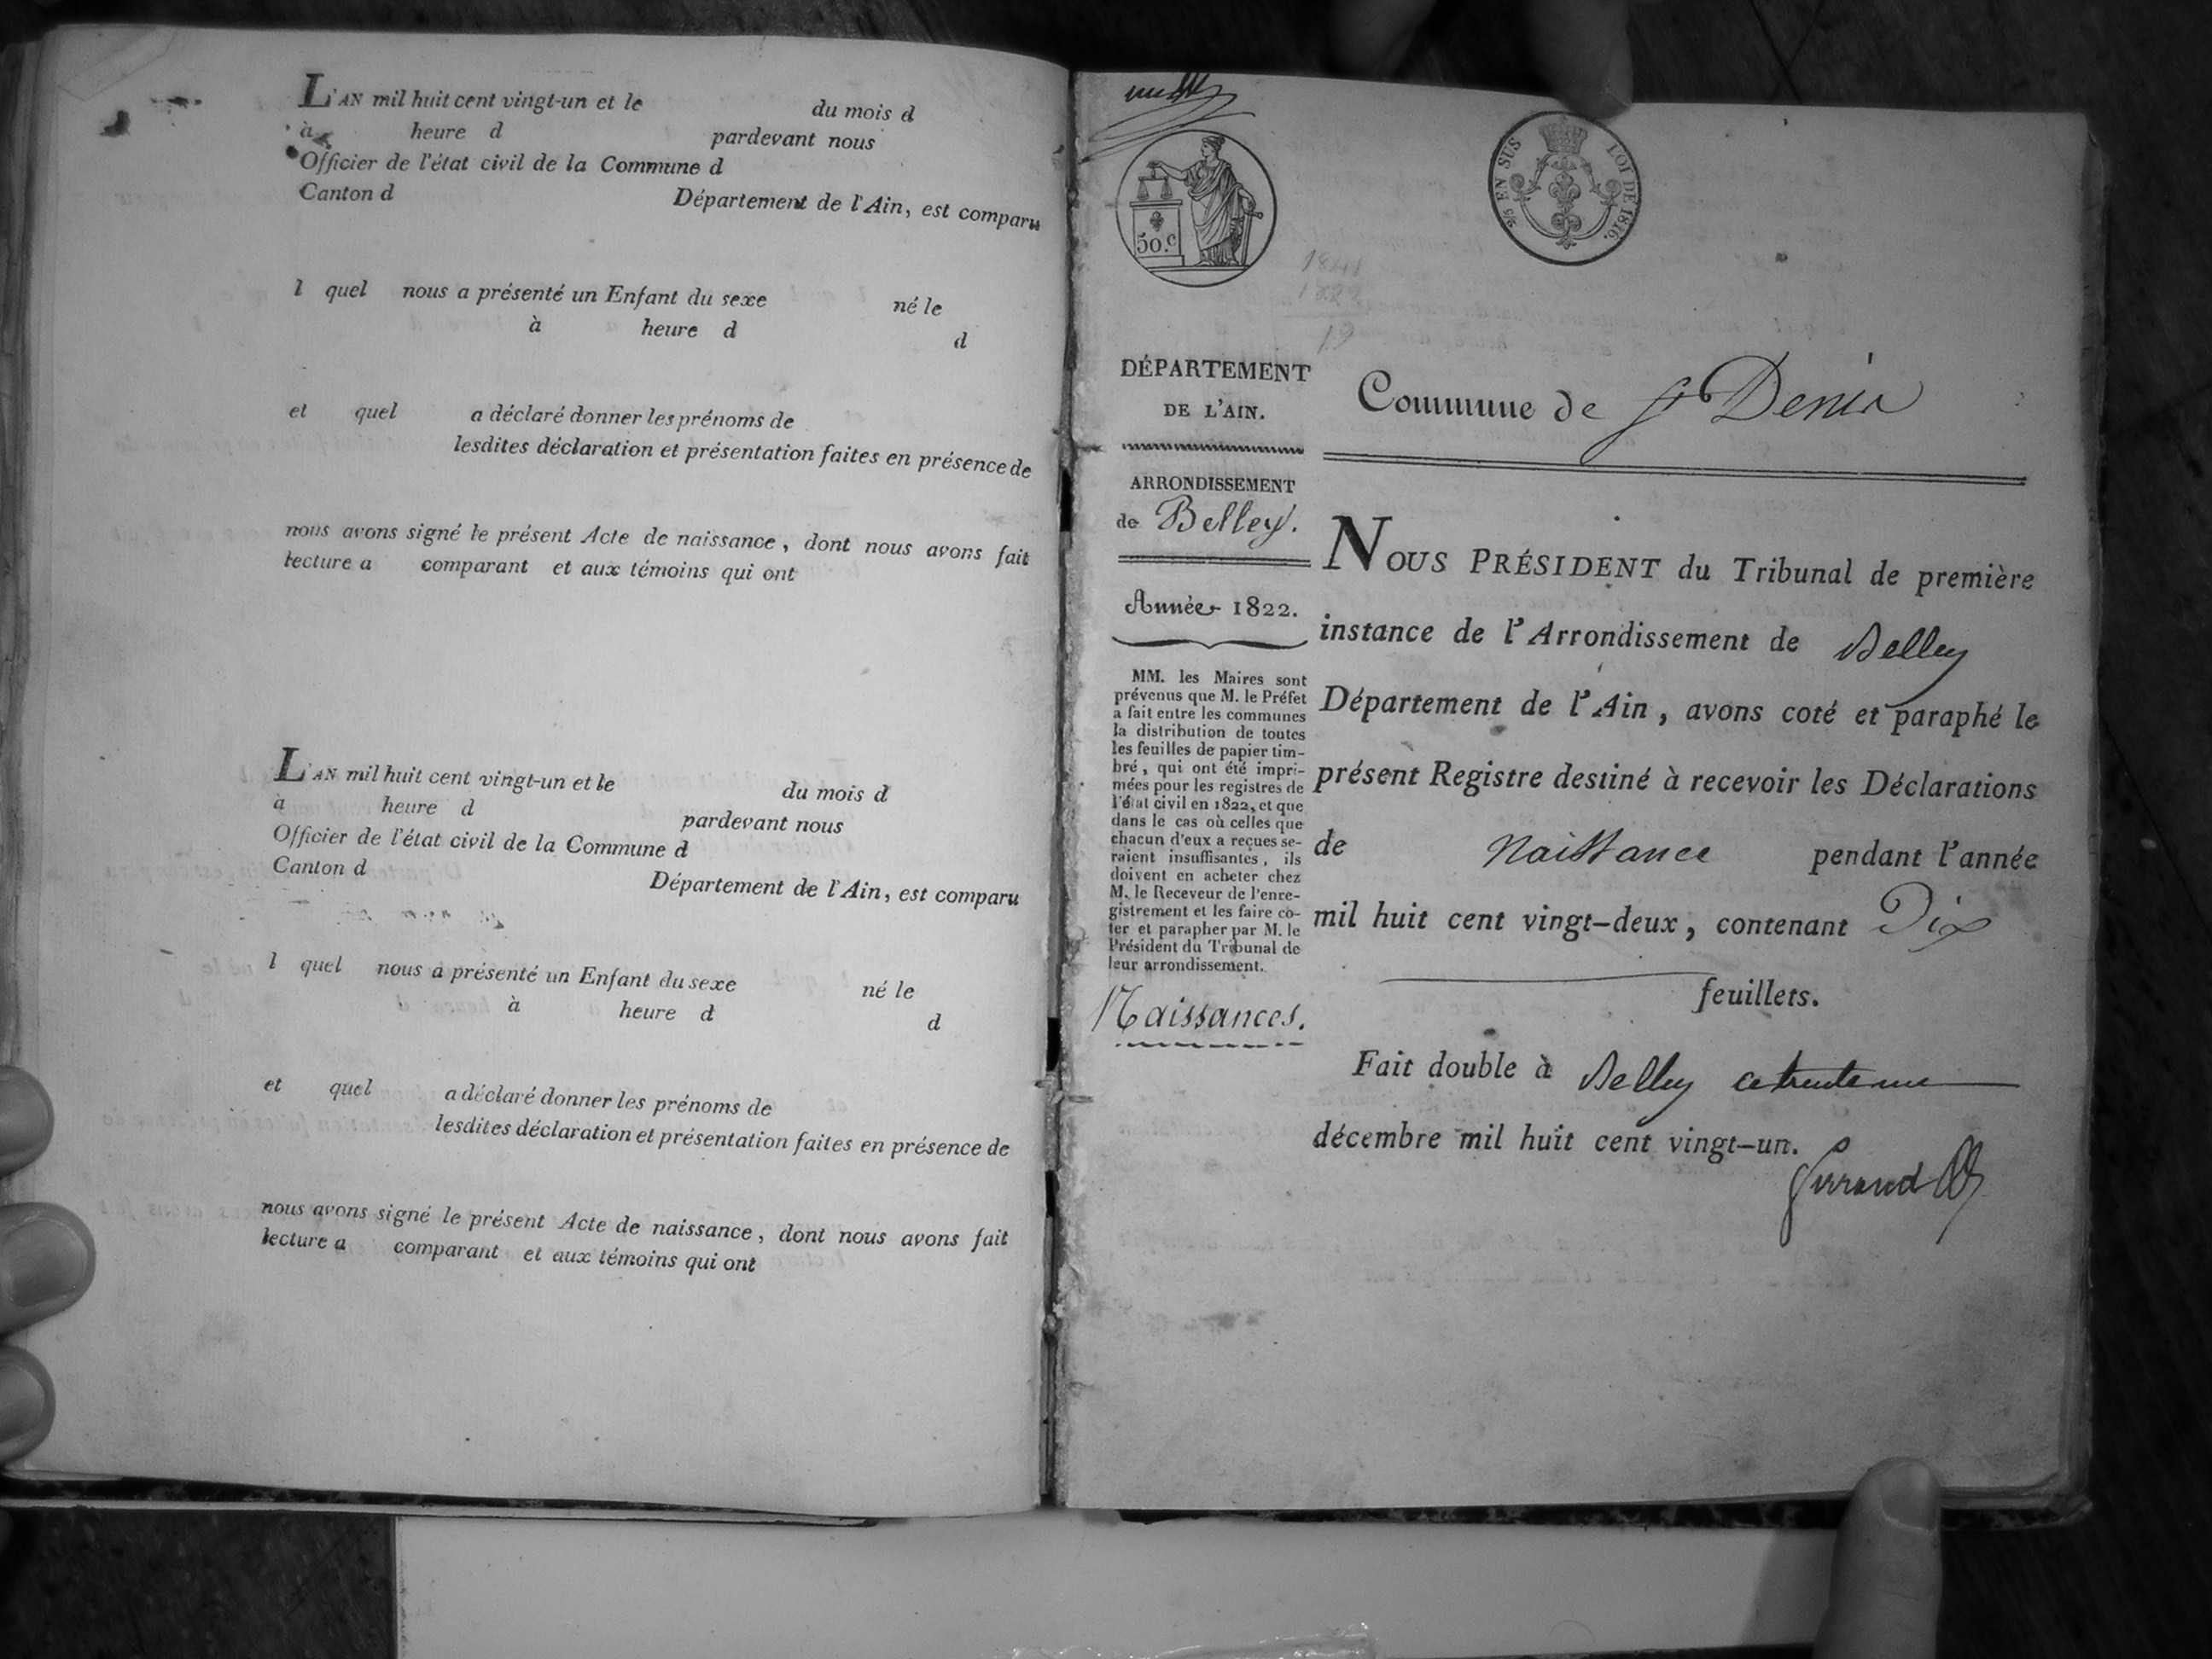 L'AN mil huit cent vingt-un et le du mois d
à heure d pardevant nous
Officier de l'état civil de la Commune d
Canton d Département de l'Ain, est comparu
l quel nous a présenté un Enfant du sexe né le
à heure d d
et quel a déclaré donner les prénoms de
lesdites déclaration et présentation faites en présence de
nous avons signé le présent Acte de naissance, dont nous avons fait
lecture a comparant et aux témoins qui ont
L'AN mil huit cent vingt-un et le du mois d
à heure d pardevant nous
Officier de l'état civil de la Commune d
Canton d Département de l'Ain, est comparu
l quel nous a présenté un Enfant du sexe né le
à heure d d
et quel a déclaré donner les prénoms de
lesdites déclaration et présentation faites en présence de
nous avons signé le présent Acte de naissance, dont nous avons fait
lecture a comparant et aux témoins qui ont
50.c
EN SUS LOI DE 1816.
1822
19
DÉPARTEMENT
DE L'AIN.
ARRONDISSEMENT
de Belley.
Année 1822.
MM. les Maires sont
prévenus que M. le Préfet
a fait entre les communes
la distribution de toutes
les feuilles de papier tim-
bré, qui ont été impri-
mées pour les registres de
l'état civil en 1822, et que
dans le cas où celles que
chacun d'eux a reçues se-
raient insuffisantes, ils
doivent en acheter chez
M. le Receveur de l'enre-
gistrement et les faire co-
ter et parapher par M. le
Président du Tribunal de
leur arrondissement.
Naissances.
Commune de St Denis
NOUS PRÉSIDENT du Tribunal de première
instance de l'Arrondissement de Belley
Département de l'Ain, avons coté et paraphé le
présent Registre destiné à recevoir les Déclarations
de Naissance pendant l'année
mil huit cent vingt-deux, contenant Dix
feuillets.
Fait double à Belley ce trente un
décembre mil huit cent vingt-un.